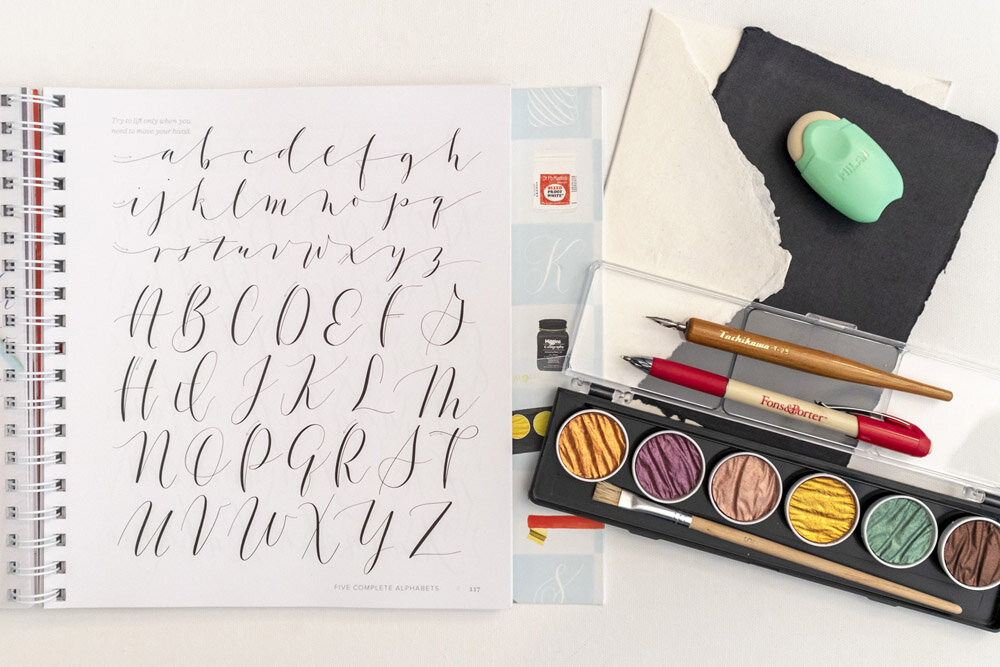 Try to lift only when you
need to move your hand.
a b c d e f g h
i j k l m n o p q
r s t u v w x y z
A B C D E F G
H I J K L M
N O P Q R S T
U V W X Y Z
FIVE COMPLETE ALPHABETS
Dr. Ph. Martin's
BLEED
PROOF
WHITE
K
Higgins
S
MILAN
Tachikawa
Fons&Porter